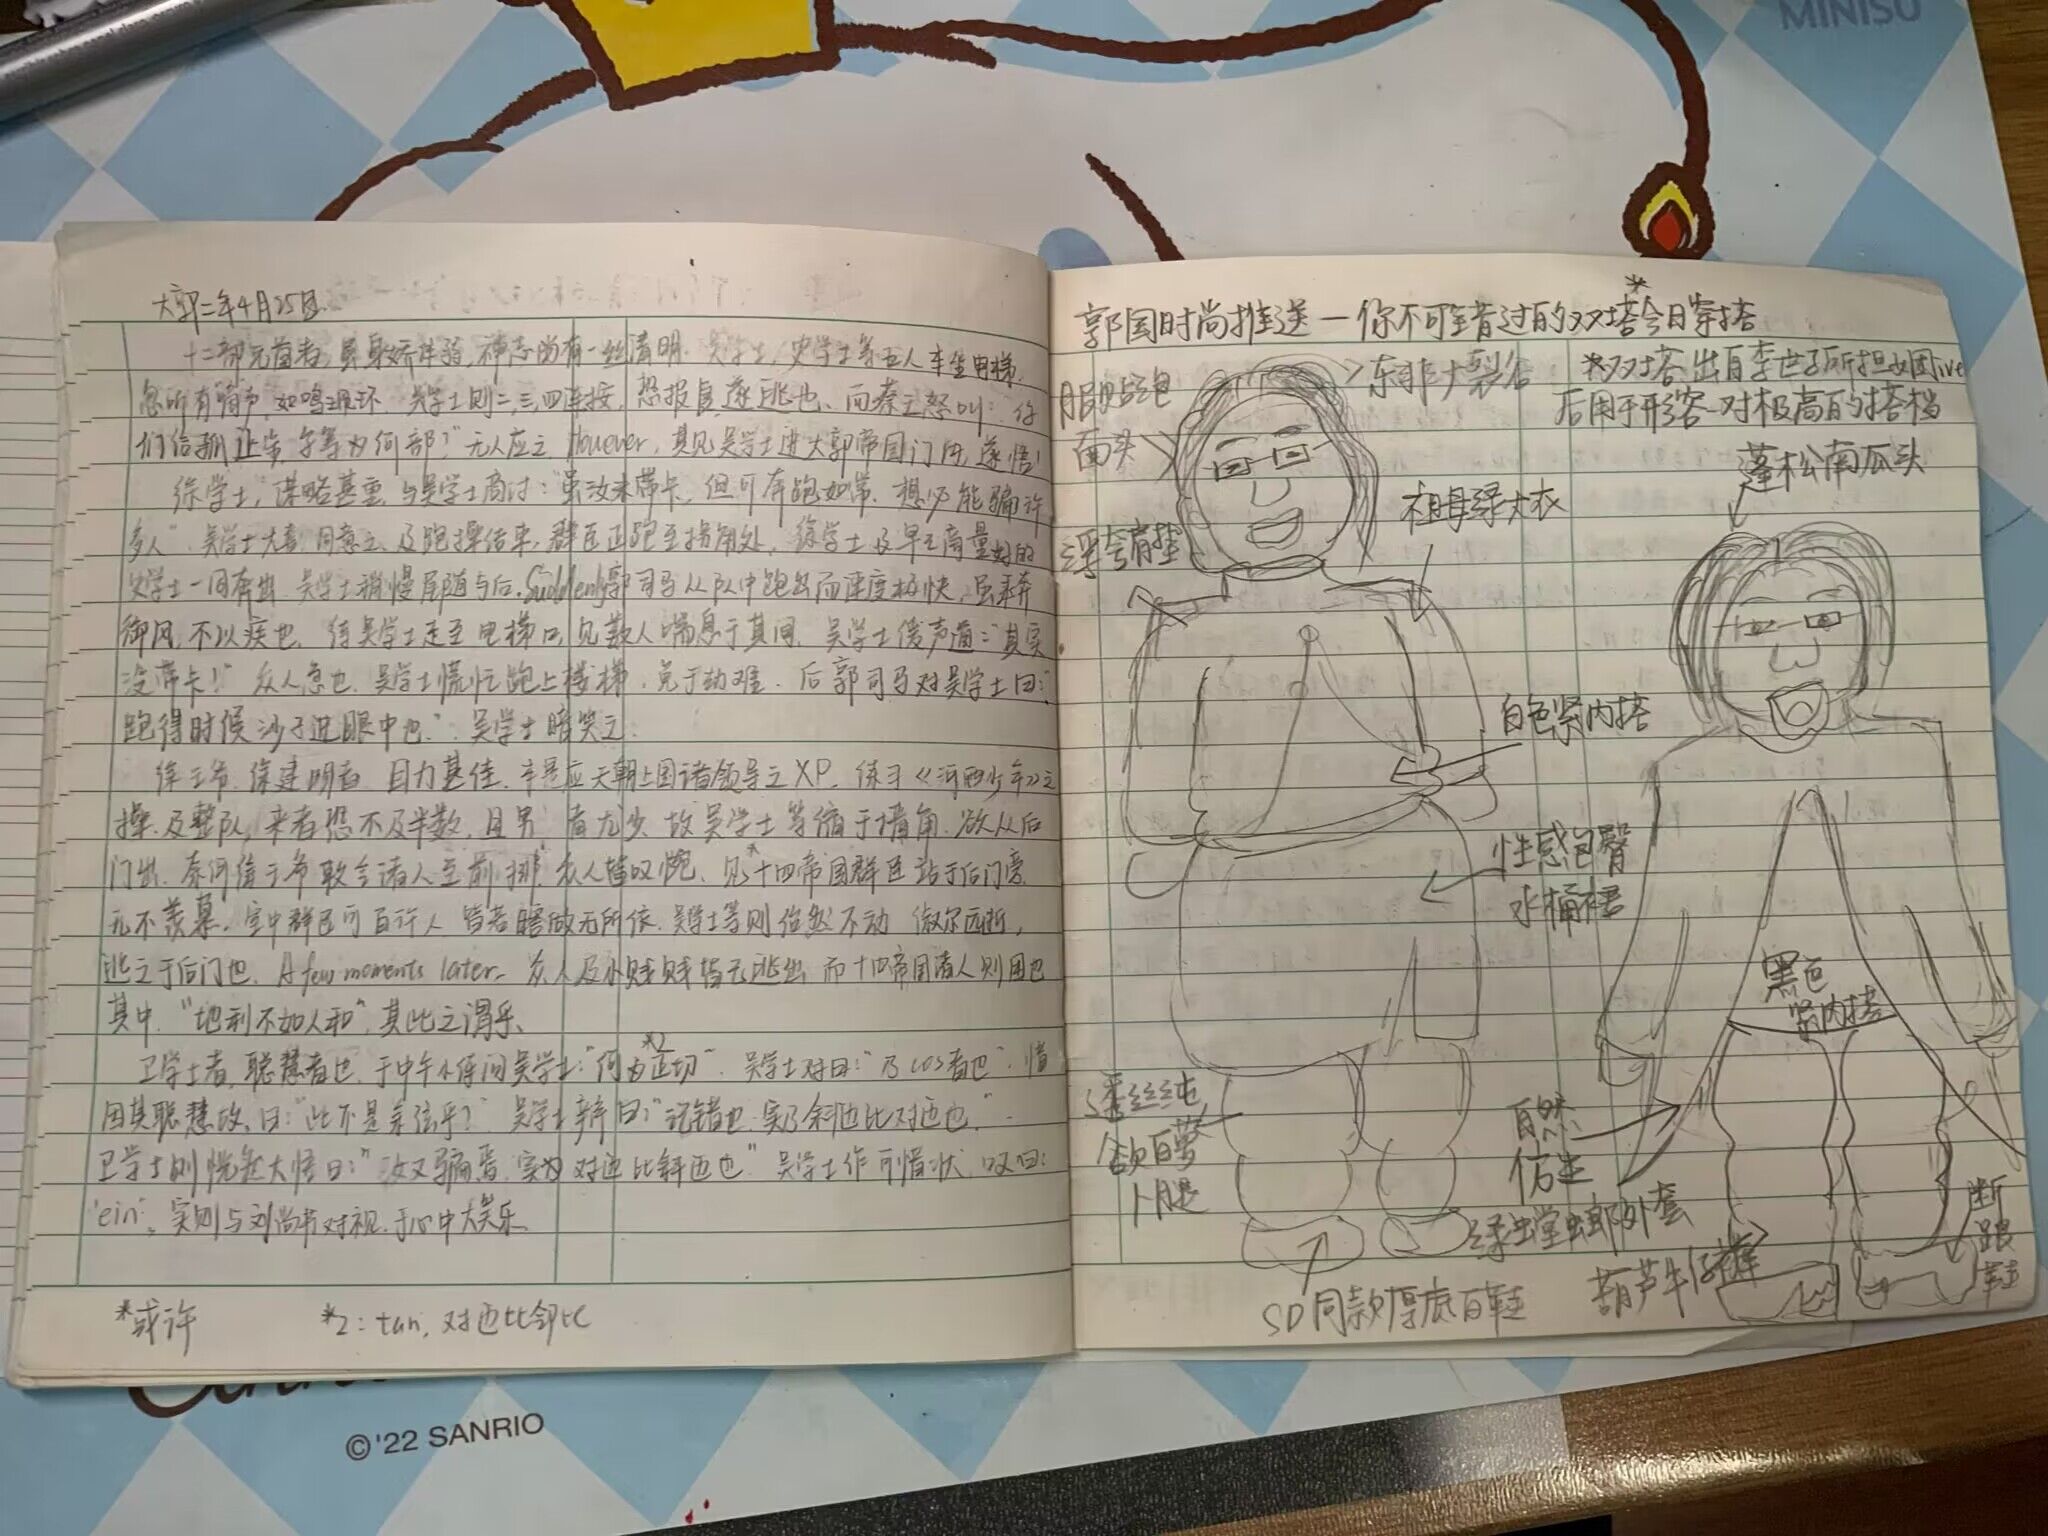 MINISO
大郭二年4月25日.
十二部元首者,虽身娇体弱,神志尚有一丝清明.吴学士,史学士等五人车坐电梯,
忽听有笛声,如鸣珮环.吴学士则二,三,四连接,恐报身,遂逃也、而秦王怒叫:“你
们给朕止步,尔等为何部?”无人应之,However,其见吴学士进大郭帝国门内,遂悟!
徐学士,谋略甚重,与吴学士商讨:“虽汝未带卡,但可奔跑如常,想必能骗许
多人”.吴学士大喜,同意之、及跑操结束,群臣正跑至拐角处,徐学士及早已商量好的
史学士一同奔出,吴学士稍慢尾随与后.Suddenly郭司马从队中跑出而速度极快,虽乘奔
御风,不以疾也.待吴学士走至电梯口,见数人喘息于其间.吴学士使声道:“其实
没带卡!”众人急也,吴学士慌忙跑上楼梯,免于劫难.后郭司马对吴学士曰:“
跑得时候沙子进眼中也.”吴学士暗笑之.
徐王爷,徐建明者,目力甚佳.于是应天朝上国诸领导之XP,练习《河西少年》之
操.及整队,来者恐不及半数,且男 者尤少,故吴学士等宿于墙角.欲从后
门出,奈何徐王爷敢令诸人至前排,众人皆叹*跑.见十四帝国群臣站于后门旁,
无不羡慕.室中群臣可百许人,皆若瞎般无所依.吴学士等则佁然不动,俶尔远逝,
逃之于后门也.A few moments later-众人及小贱贱皆已逃出,而十四帝国诸人则困也
其中,“地利不如人和”,其此之谓乎、
卫学士者,聪慧者也.于中午小傅问吴学士:“何为*2正切”.吴学士对曰:“乃cos者也”,惜
因其聪慧故,曰:“此不是余弦乎?”吴学士辨曰:“记错也,实乃斜边比对边也.”
卫学士则恍然大悟曰:“汝又骗焉,实为对边比斜边也”吴学士作可惜状,叹曰:
‘ein’,实则与刘尚书对视,于心中大笑乐.
*或许 *2:tan,对边比邻比
郭国时尚推送—你不可错过的双塔*今日穿搭
*双塔出自李世子所担女团ive
后用于形容一对极高的搭档
>东非大裂谷
面头
浮夸肩垫
祖母绿大衣
蓬松南瓜头
白色紧内搭
性感包臀
水桶裙
透丝纯
欲白萝
卜腿
黑色
紧内搭
自然
仿生
绿螳螂外套
葫芦牛仔裤
断
跟
鞋
SD同款厚底百鞋
©'22 SANRIO